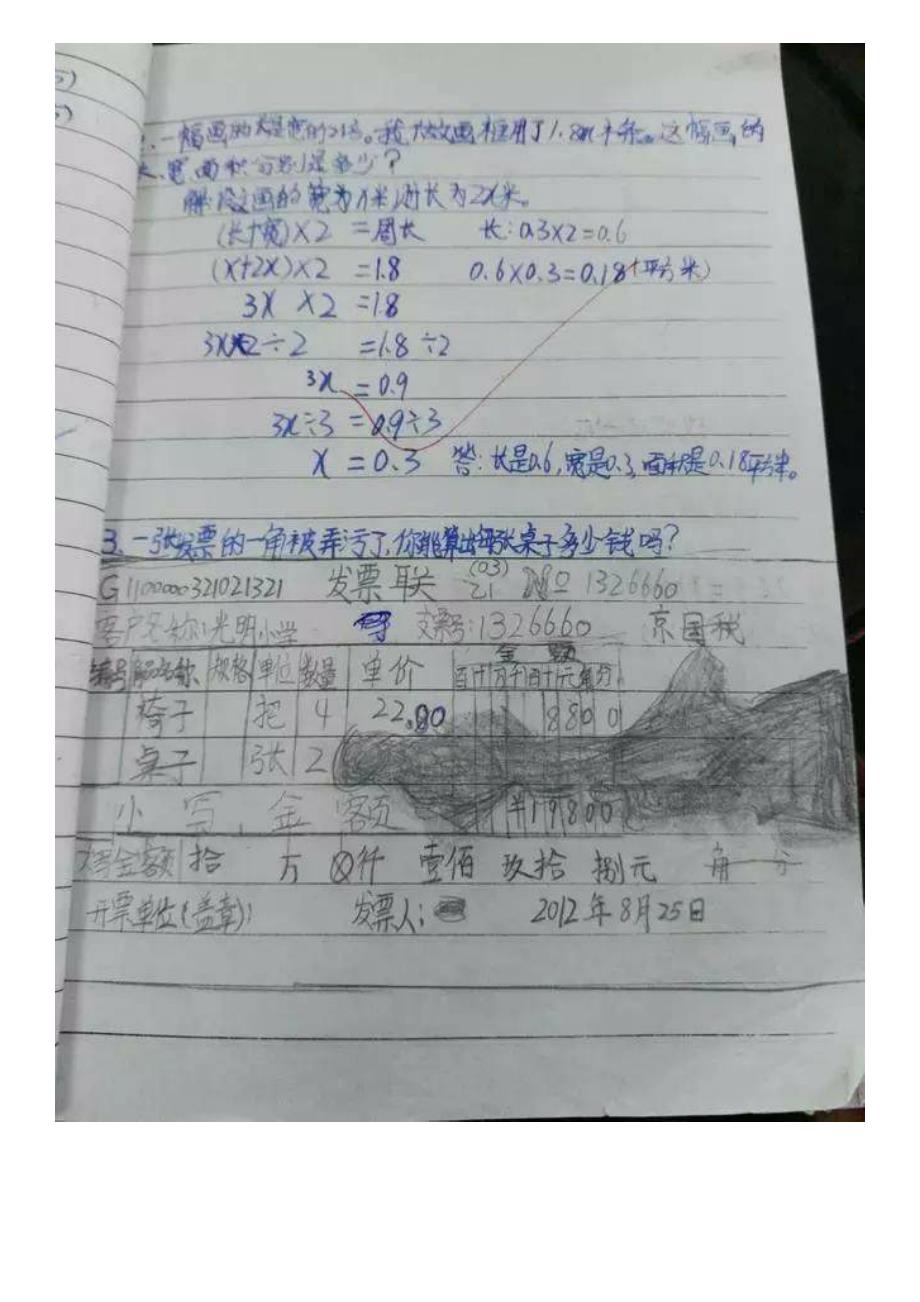 5)
5)
一幅画的长是宽的2倍。我做画框用了1.8m木条。这幅画的
长、宽、面积分别是多少?
解:设画的宽为x米,则长为2x米。
(长+宽)×2 =周长 长:0.3×2=0.6
(x+2x)×2 =1.8 0.6×0.3=0.18(平方米)
3x ×2 =1.8
3x×2÷2 =1.8÷2
3x =0.9
3x÷3 =0.9÷3
x =0.3 答:长是0.6,宽是0.3,面积是0.18平方米。
3.一张发票的一角被弄污了,你能算出每张桌子多少钱吗?
G1100000321021321 发票联 (03) 21 No 1326660
客户名称:光明小学 支票号:1326660 京国税
编号 商品名称 规格 单位 数量 单价 金额
百十万千百十元角分
椅子 把 4 22.00 8800
桌子 张 2
小写金额 ¥19800
大写金额 拾 万 ⊗仟 壹佰 玖拾 捌元 角 分
开票单位(盖章): 发票人: 2012年8月25日